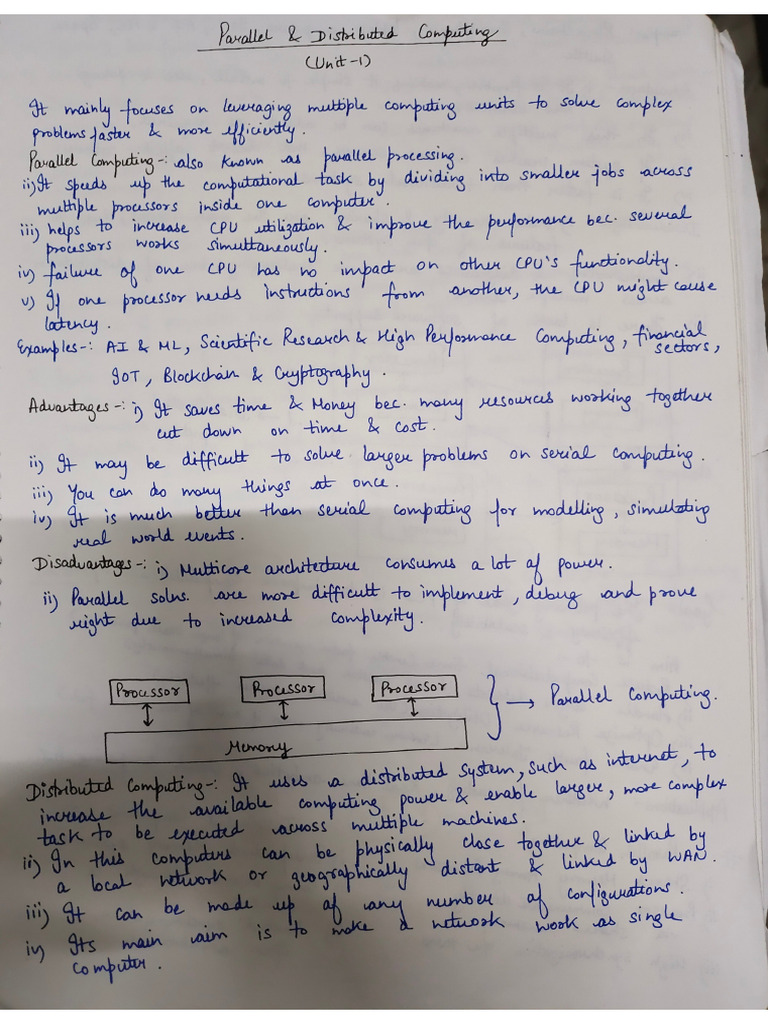 Parallel & Distributed Computing
(Unit-1)
It mainly focuses on leveraging multiple computing units to solve complex
problems faster & more efficiently.
Parallel Computing-: also known as parallel processing.
ii) It speeds up the computational task by dividing into smaller jobs across
multiple processors inside one computer.
iii) helps to increase CPU utilization & improve the performance bec. several
processors works simultaneously.
iv) failure of one CPU has no impact on other CPU's functionality.
v) If one processor needs instructions from another, the CPU might cause
latency.
Examples-: AI & ML, Scientific Research & High Performance Computing, financial
sectors,
IOT, Blockchain & Cryptography.
Advantages-: i) It saves time & Money bec. many resources working together
cut down on time & cost.
ii) It may be difficult to solve larger problems on serial computing.
iii) You can do many things at once.
iv) It is much better than serial computing for modelling, simulating
real world events.
Disadvantages-: i) Multicore architecture consumes a lot of power.
ii) Parallel solns. are more difficult to implement, debug and prove
right due to increased complexity.
Processor Processor Processor → Parallel Computing.
Memory
Distributed Computing-: It uses a distributed system, such as internet, to
increase the available computing power & enable larger, more complex
task to be executed across multiple machines.
ii) In this computers can be physically close together & linked by
a local network or geographically distant & linked by WAN.
iii) It can be made up of any number of configurations.
iv) Its main aim is to make a network work as single
computer.